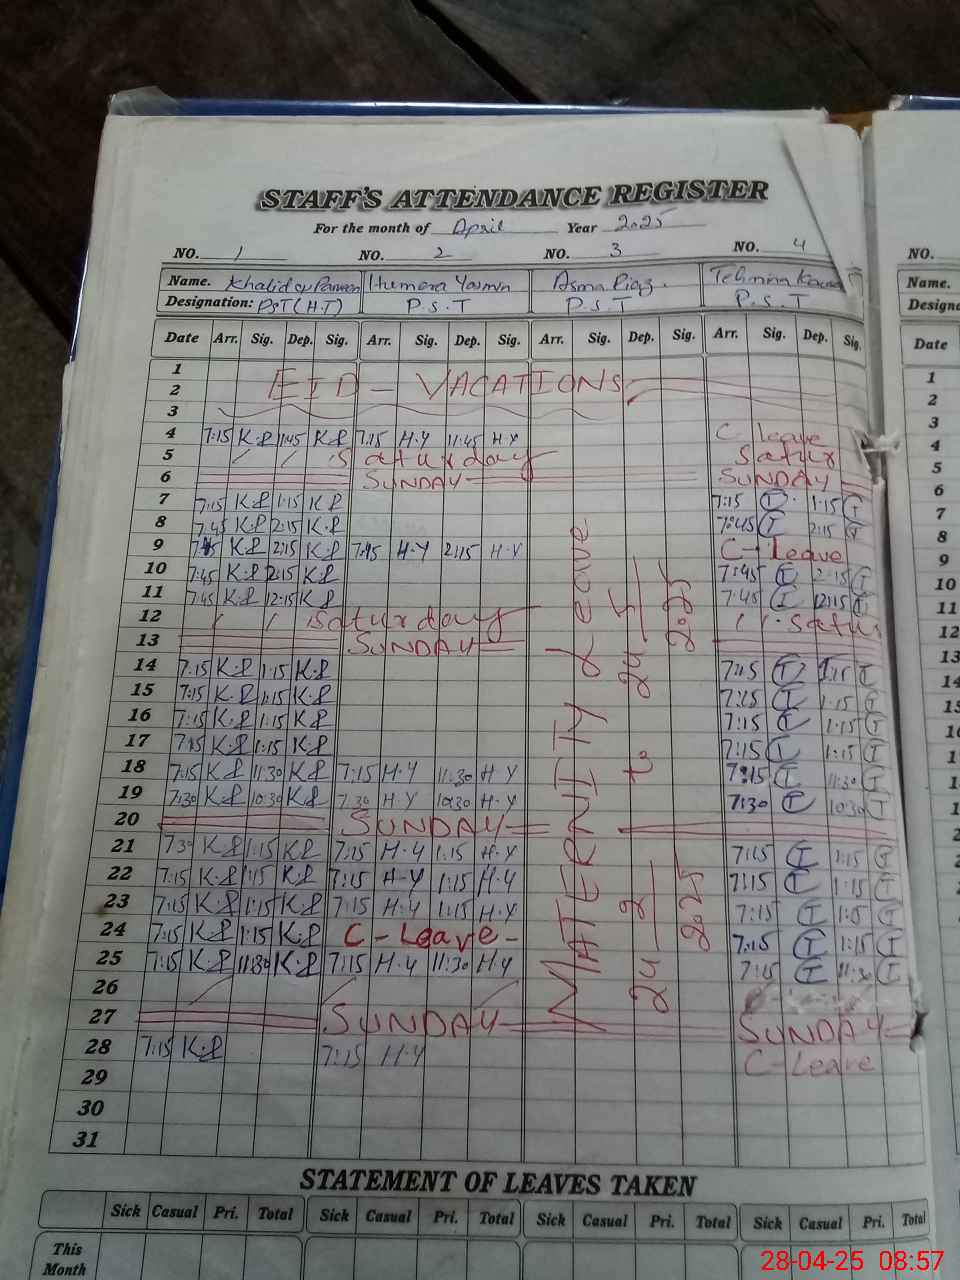 STAFF'S ATTENDANCE REGISTER
For the month of April Year 2025
NO. 1 NO. 2 NO. 3 NO. 4 NO.
Name. Khalida Parveen Humera Yasmin Asma Riaz. Tehmina Name.
Designation: PST (H.T) P.S.T P.S.T P.S.T
Date Arr. Sig. Dep. Sig. Arr. Sig. Dep. Sig. Arr. Sig. Dep. Sig. Arr. Sig. Dep. Sig. Date
1
2 EID - VACATIONS
3
4 7:15 K.P 11:45 K.P 7:15 H.Y 11:45 H.Y C-leave
5 Saturday Satur
6 SUNDAY SUNDAY
7 7:15 K.P 1:15 K.P 7:15 T 1:15 T
8 7:45 K.P 2:15 K.P 7:45 T 2:15 T
9 7:45 K.P 2:15 K.P 7:45 H.Y 2:15 H.Y C-Leave
10 7:45 K.P 2:15 K.P 7:45 T 2:15 T
11 7:45 K.P 12:15 K.P 7:45 T 12:15 T
12 Saturday Satur
13 SUNDAY
14 7:15 K.P 1:15 K.P 7:15 T 1:15 T
15 7:15 K.P 1:15 K.P 7:15 T 1:15 T
16 7:15 K.P 1:15 K.P 7:15 T 1:15 T
17 7:15 K.P 1:15 K.P 7:15 T 1:15 T
18 7:15 K.P 11:30 K.P 7:15 H.Y 11:30 H.Y 7:15 T 11:30 T
19 7:30 K.P 10:30 K.P 7:30 H.Y 10:30 H.Y 7:30 T 10:30 T
20 SUNDAY
21 7:30 K.P 1:15 K.P 7:15 H.Y 1:15 H.Y 7:15 T 1:15 T
22 7:15 K.P 1:15 K.P 7:15 H.Y 1:15 H.Y 7:15 T 1:15 T
23 7:15 K.P 1:15 K.P 7:15 H.Y 1:15 H.Y 7:15 T 1:15 T
24 7:15 K.P 1:15 K.P C-Leave- 7:15 T 1:15 T
25 7:15 K.P 11:30 K.P 7:15 H.Y 11:30 H.Y 7:15 T 11:30 T
26
27 SUNDAY SUNDAY
28 7:15 K.P 7:15 H.Y C-Leave
29
30
31
MATERNITY Leave
24 2 2025 to 24 5 2025
STATEMENT OF LEAVES TAKEN
Sick Casual Pri. Total Sick Casual Pri. Total Sick Casual Pri. Total Sick Casual Pri. Total
This
Month
28-04-25 08:57